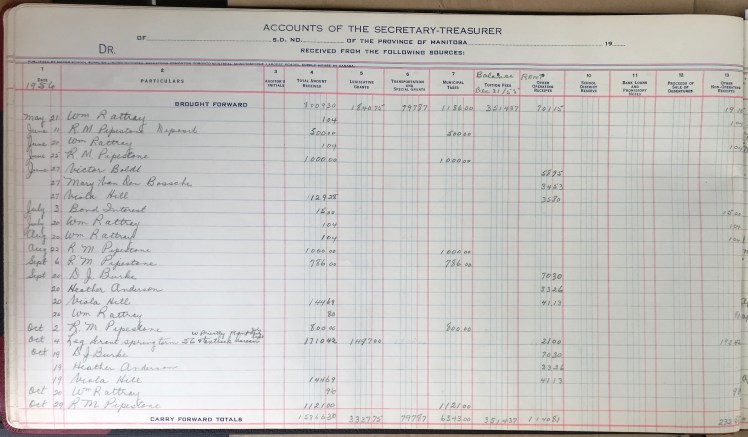 ACCOUNTS OF THE SECRETARY-TREASURER
DR. OF S.D. NO. OF THE PROVINCE OF MANITOBA 19
RECEIVED FROM THE FOLLOWING SOURCES:
1 2 3 4 5 6 7 8 9 10 11 12 13
DATE PARTICULARS TOTAL AMOUNT RECEIVED LEGISLATIVE GRANTS TRANSPORTATION AND SPECIAL GRANTS MUNICIPAL TAXES Balance TUITION FEES Dec 31/55 Rent OTHER OPERATING RECEIPTS SCHOOL DISTRICT RESERVE BANK LOANS AND PROMISSORY NOTES PROCEEDS OF SALE OF DEBENTURES OTHER NON-OPERATING RECEIPTS
1956
BROUGHT FORWARD 8009 30 1840 75 797 87 1186 00 3514 37 701 15
May 21 Wm Rattray 1 04
June 11 R M Pipestone Deposit 500 00 500 00
June 20 Wm Rattray 1 04
June 25 R M Pipestone 1000 00 1000 00
June 27 Victor Boldt 58 95
27 Mary Van Den Bossche 34 53
27 Viola Hill 129 28 35 80
July 3 Bond Interest 15 00 15 00
July 20 Wm Rattray 1 04
Aug 20 Wm Rattray 1 04
Aug 22 R M Pipestone 1000 00 1000 00
Sept 6 R M Pipestone 786 00 786 00
Sept 20 D J Burke 70 30
20 Heather Anderson 33 26
20 Viola Hill 144 69 41 13
20 Wm Rattray 80
Oct 2 R M Pipestone 800 00 800 00
Oct 4 Leg Grant spring term 56 1310 42 1497 00 28 00
Oct 19 D J Burke 70 30
19 Heather Anderson 33 26
19 Viola Hill 144 69 41 13
Oct 20 Wm Rattray
Oct 29 R M Pipestone 1121 00 1121 00
CARRY FORWARD TOTALS 3337 75 797 87 3514 37